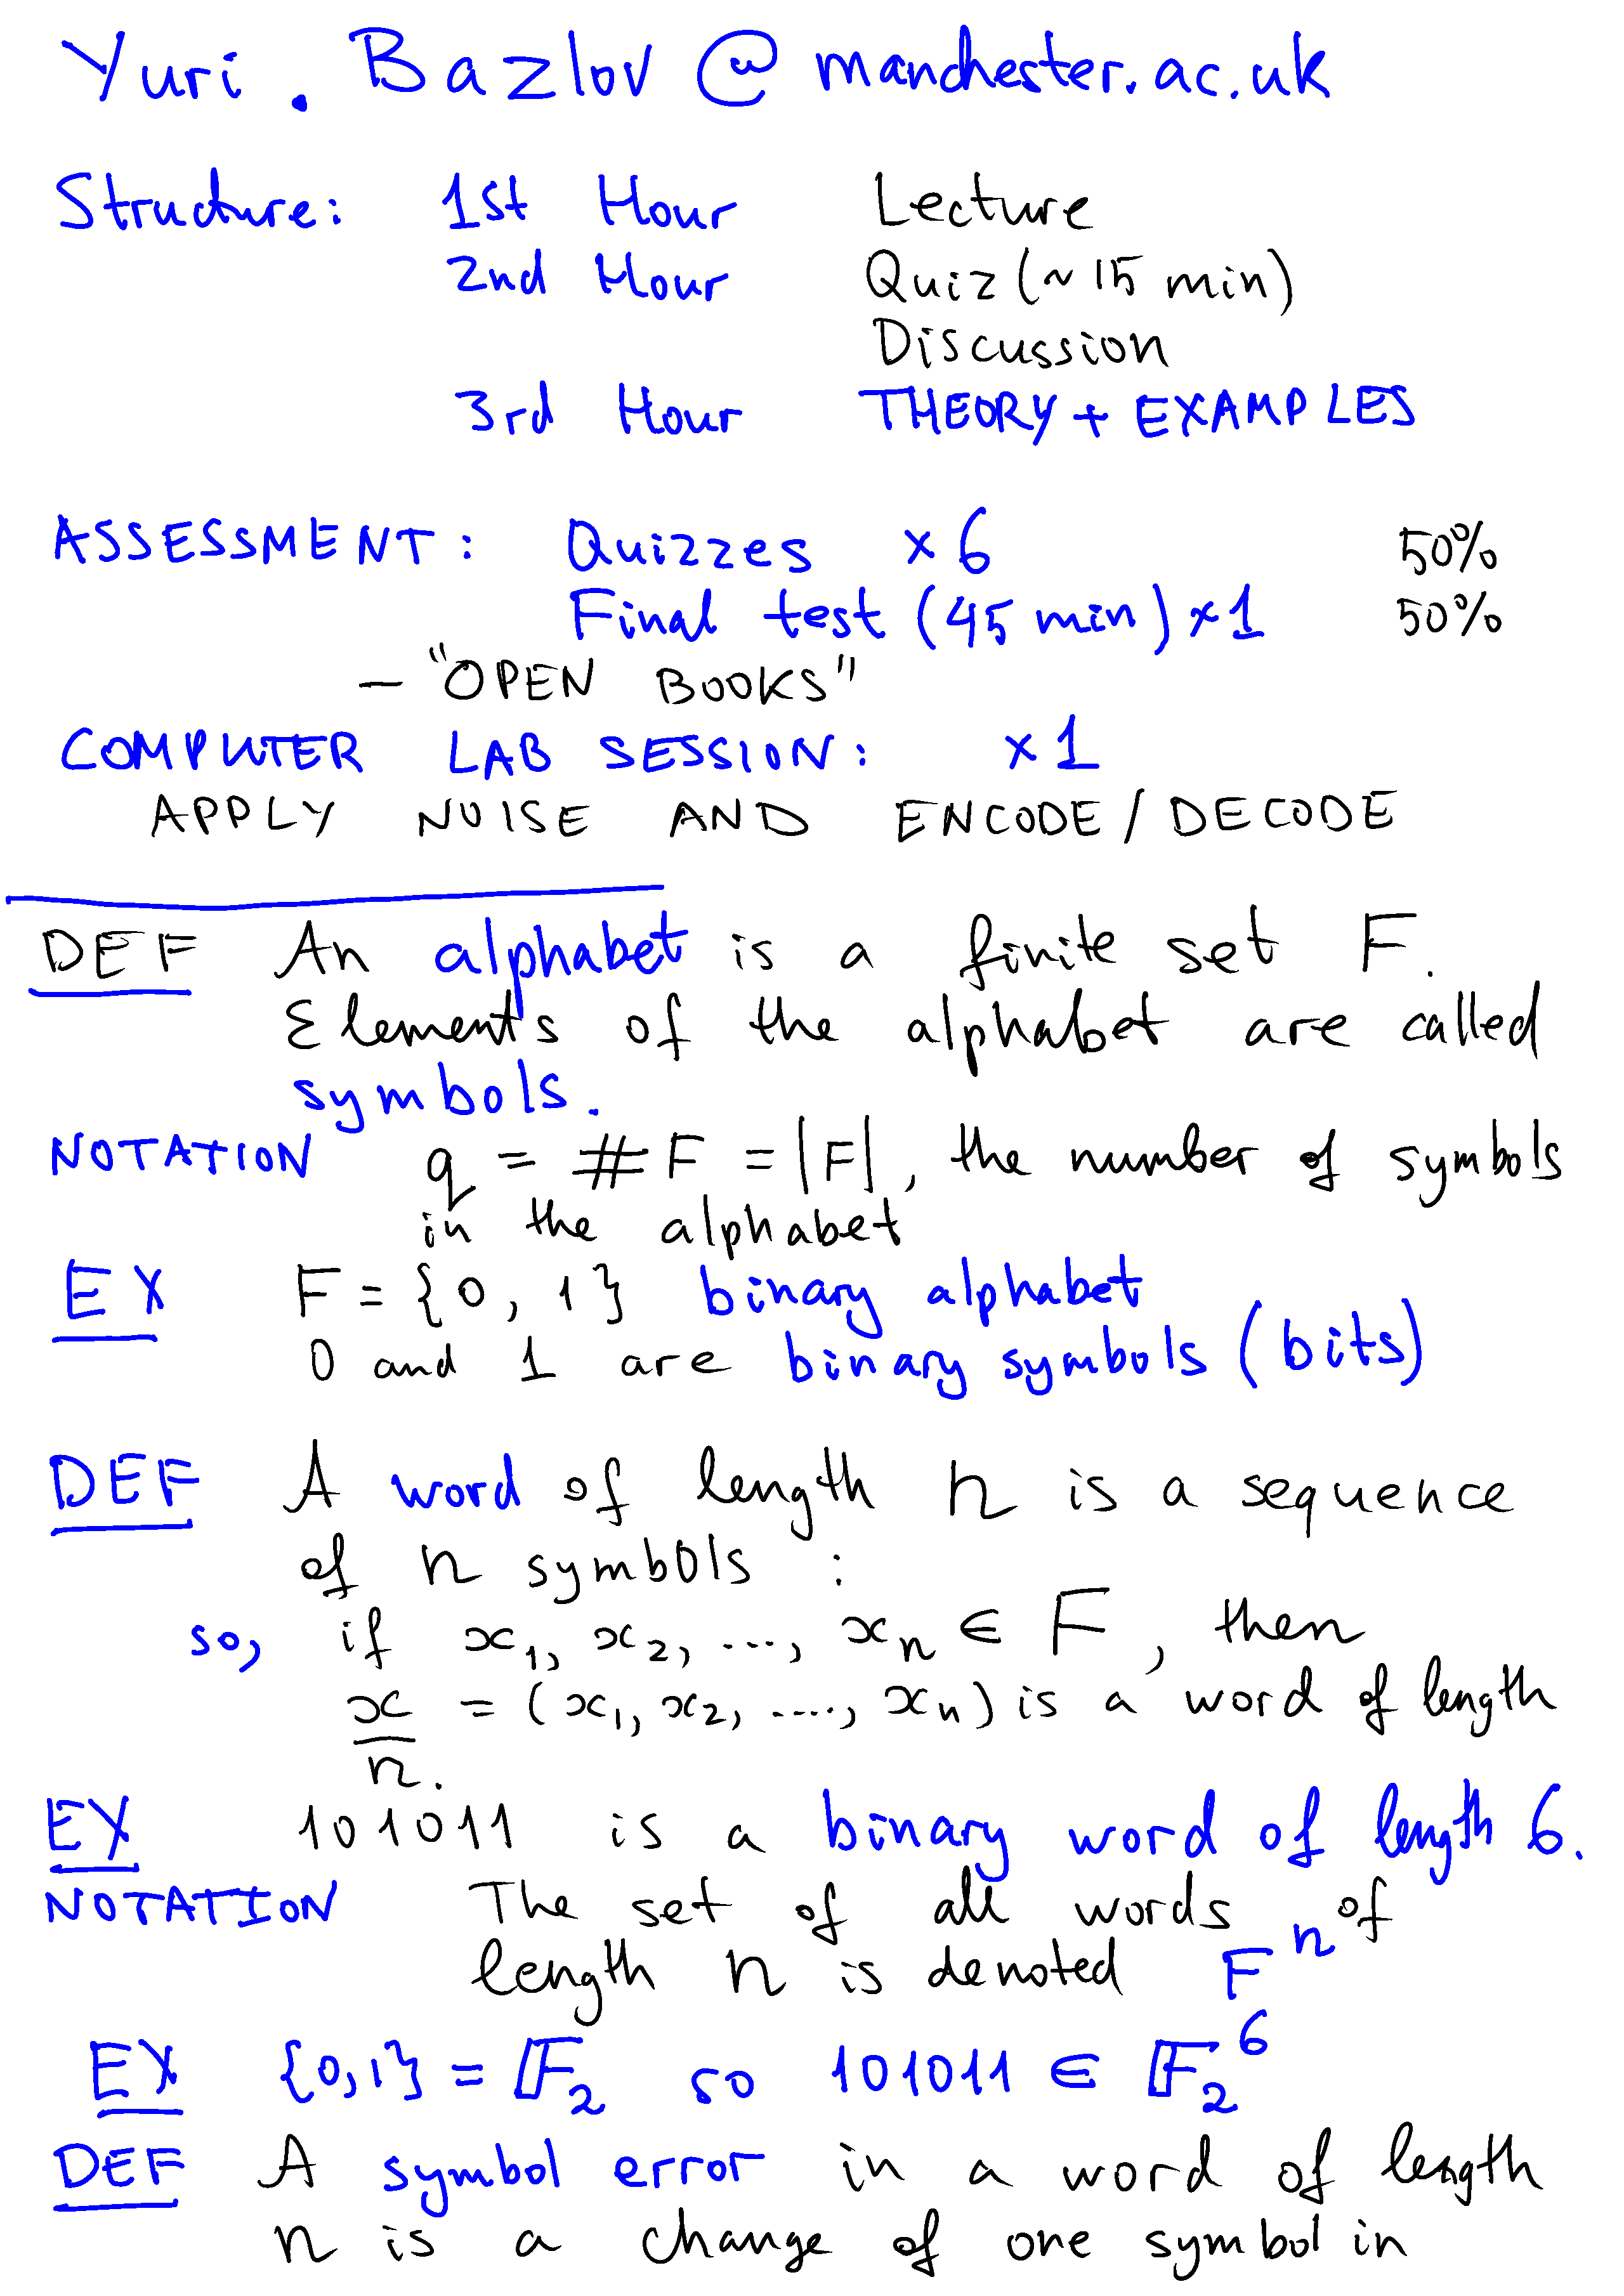 Yuri.Bazlov@manchester.ac.uk
Structure: 1st Hour Lecture
2nd Hour Quiz (~15 min)
Discussion
3rd Hour THEORY + EXAMPLES
ASSESSMENT: Quizzes ×6 50%
Final test (45 min) ×1 50%
— "OPEN BOOKS"
COMPUTER LAB SESSION: ×1
APPLY NOISE AND ENCODE / DECODE
DEF An alphabet is a finite set F.
Elements of the alphabet are called
symbols.
NOTATION q = #F = |F|, the number of symbols
in the alphabet
EX F = {0, 1} binary alphabet
0 and 1 are binary symbols (bits)
DEF A word of length n is a sequence
of n symbols :
so, if x₁, x₂, ..., xₙ ∈ F, then
x̲ = (x₁, x₂, ...., xₙ) is a word of length
n.
EX 101011 is a binary word of length 6.
NOTATION The set of all words of
length n is denoted Fⁿ
EX {0,1} = 𝔽₂ so 101011 ∈ 𝔽₂⁶
DEF A symbol error in a word of length
n is a change of one symbol in